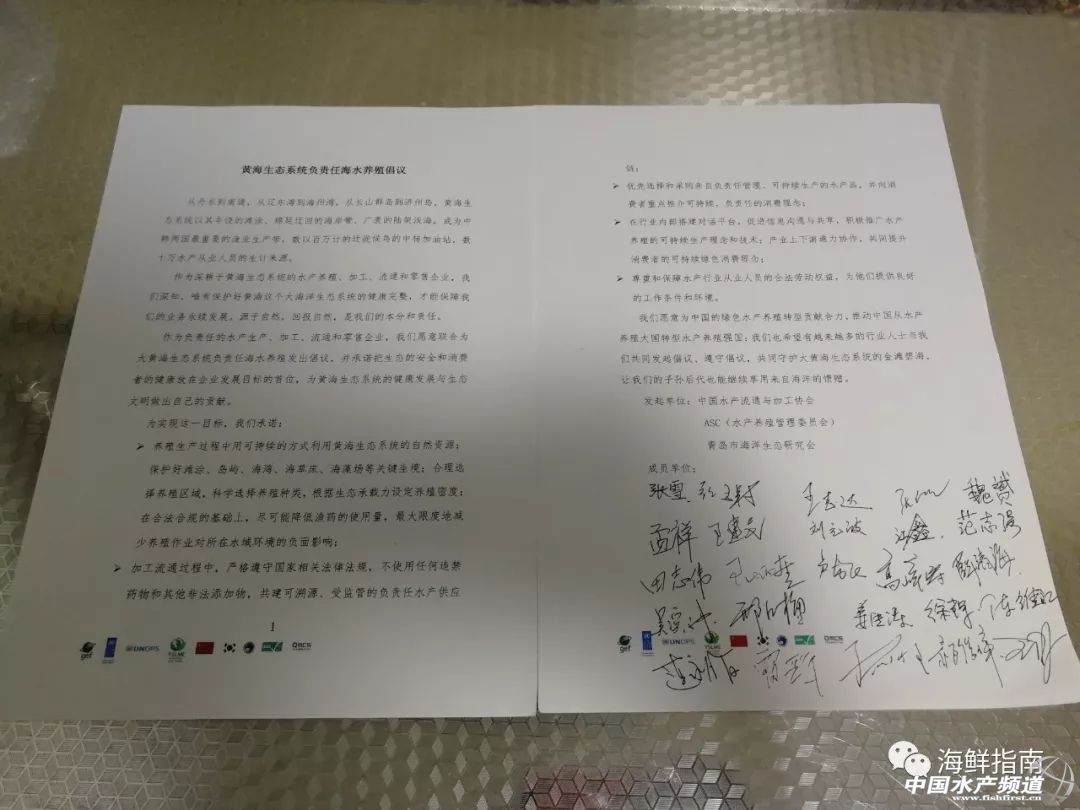 黄海生态系统负责任海水养殖倡议
从丹东到南通，从辽东湾到海州湾，从长山群岛到济州岛，黄海生
态系统以其丰饶的滩涂、绵延迂回的海岸带、广袤的陆架浅海，成为中
韩两国最重要的渔业生产带，数以百万计的迁徙候鸟的中转加油站，数
十万水产从业人员的生计来源。
作为深耕于黄海生态系统的水产养殖、加工、流通和零售企业，我
们深知，唯有保护好黄海这个大海洋生态系统的健康完整，才能保障我
们的业务永续发展。源于自然，回报自然，是我们的本分和责任。
作为负责任的水产生产、加工、流通和零售企业，我们愿意联合为
大黄海生态系统负责任海水养殖发出倡议，并承诺把生态的安全和消费
者的健康放在企业发展目标的首位，为黄海生态系统的健康发展与生态
文明做出自己的贡献。
为实现这一目标，我们承诺：
➢ 养殖生产过程中用可持续的方式利用黄海生态系统的自然资源；
保护好滩涂、岛屿、海湾、海草床、海藻场等关键生境；合理选
择养殖区域，科学选择养殖种类，根据生态承载力设定养殖密度；
在合法合规的基础上，尽可能降低渔药的使用量，最大限度地减
少养殖作业对所在水域环境的负面影响；
➢ 加工流通过程中，严格遵守国家相关法律法规，不使用任何违禁
药物和其他非法添加物，共建可溯源、受监管的负责任水产供应
1
gef
UNOPS
YSLME
链；
➢ 优先选择和采购来自负责任管理、可持续生产的水产品，并向消
费者重点推介可持续、负责任的消费理念；
➢ 在行业内部搭建对话平台，促进信息沟通与共享，积极推广水产
养殖的可持续生产理念和技术；产业上下游通力协作，共同提升
消费者的可持续绿色消费理念；
➢ 尊重和保障水产行业从业人员的合法劳动权益，为他们提供良好
的工作条件和环境。
我们愿意为中国的绿色水产养殖转型贡献合力，推动中国从水产
养殖大国转型水产养殖强国；我们也希望有越来越多的行业人士与我
们共同发起倡议、遵守倡议，共同守护大黄海生态系统的金滩碧海，
让我们的子孙后代也能继续享用来自海洋的馈赠。
发起单位：中国水产流通与加工协会
ASC（水产养殖管理委员会）
青岛市海洋生态研究会
成员单位：
张雪 王志达 魏赟
孟祥 刘元波 鑫 范志强
田志伟 高
姜 徐
gef
海鲜指南
中国水产频道
www.fishfirst.cn